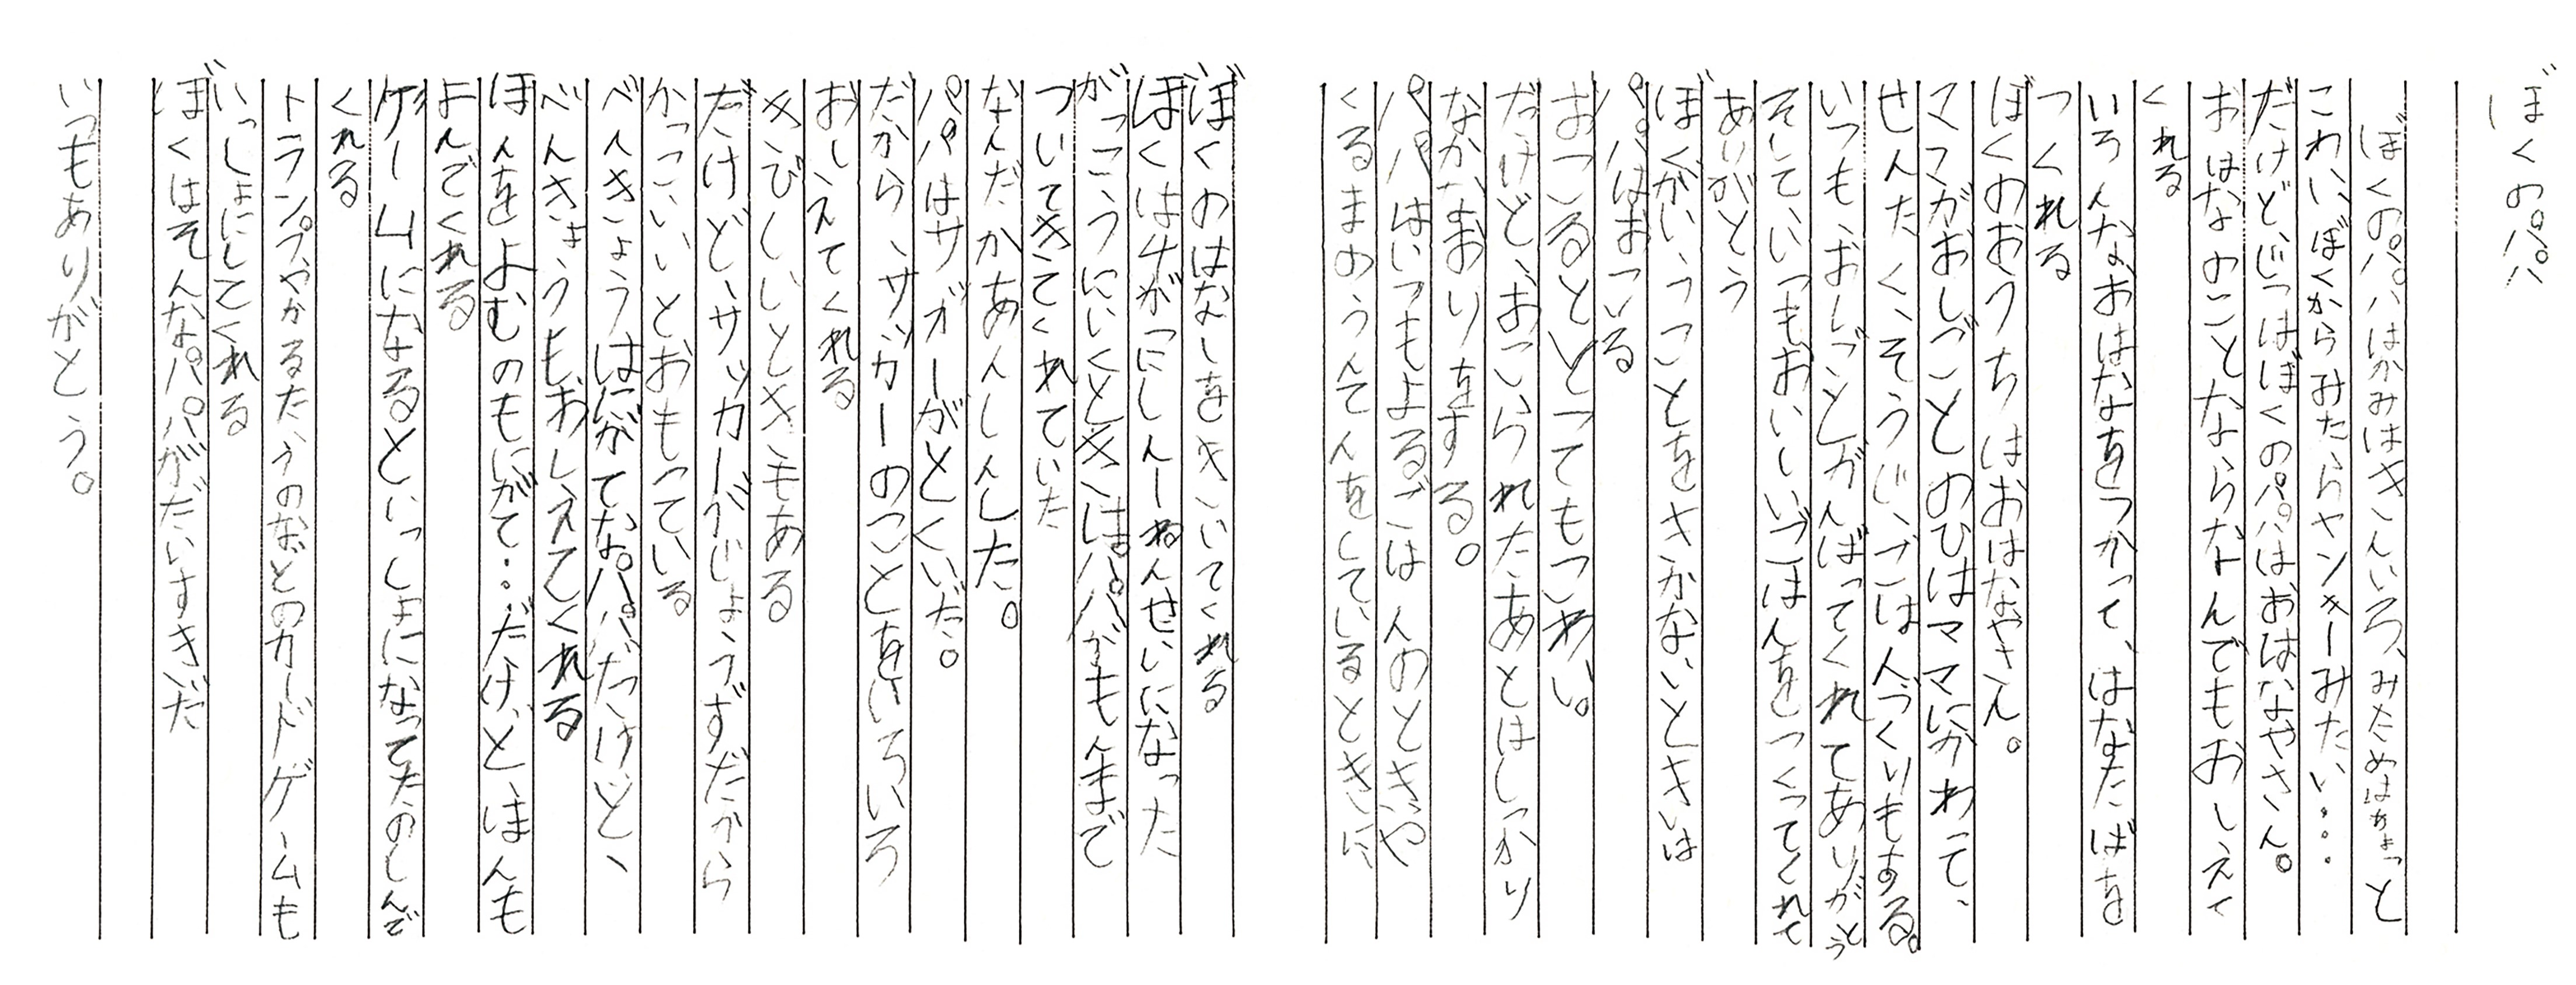 ぼくのパパ
ぼくのパパはかみはきんいろ、みためはちょっと
こわい、ぼくからみたらヤンキーみたい・・・
だけどじつはぼくのパパはおはなやさん。
おはなのことならなんでもおしえて
くれる
いろんなおはなをつかって、はなたばを
つくれる
ぼくのおうちはおはなやさん。
ママがおしごとのひはママにかわって、
せんたく、そうじ、ごはんづくりもする。
いつも、おしごとがんばってくれてありがとう
そしていつもおいしいごはんをつくってくれて
ありがとう
ぼくがいうことをきかないときは
パパはおこる
おこるととってもこわい。
だけど、おこられたあとはしっかり
なかなおりをする。
パパはいつもよるごはんのときや
くるまのうんてんをしているときに、
ぼくのはなしをきいてくれる
ぼくは4がつにしんーねんせいになった
がっこうにいくときはパパがもんまで
ついてきてくれていた
なんだかあんしんした。
パパはサッカーがとくいだ。
だから、サッカーのことをいろいろ
おしえてくれる
きびしいときもある
だけど、サッカーがじょうずだから
かっこいいとおもっている
べんきょうはにがてなパパだけど、
べんきょうもおしえてくれる
ほんをよむのもにがて・・だけど、ほんも
よんでくれる
ゲームになるといっしょになってたのしんで
くれる
トランプやかるたうのなどのカードゲームも
いっしょにしてくれる
ぼくはそんなパパがだいすきだ
いつもありがとう。